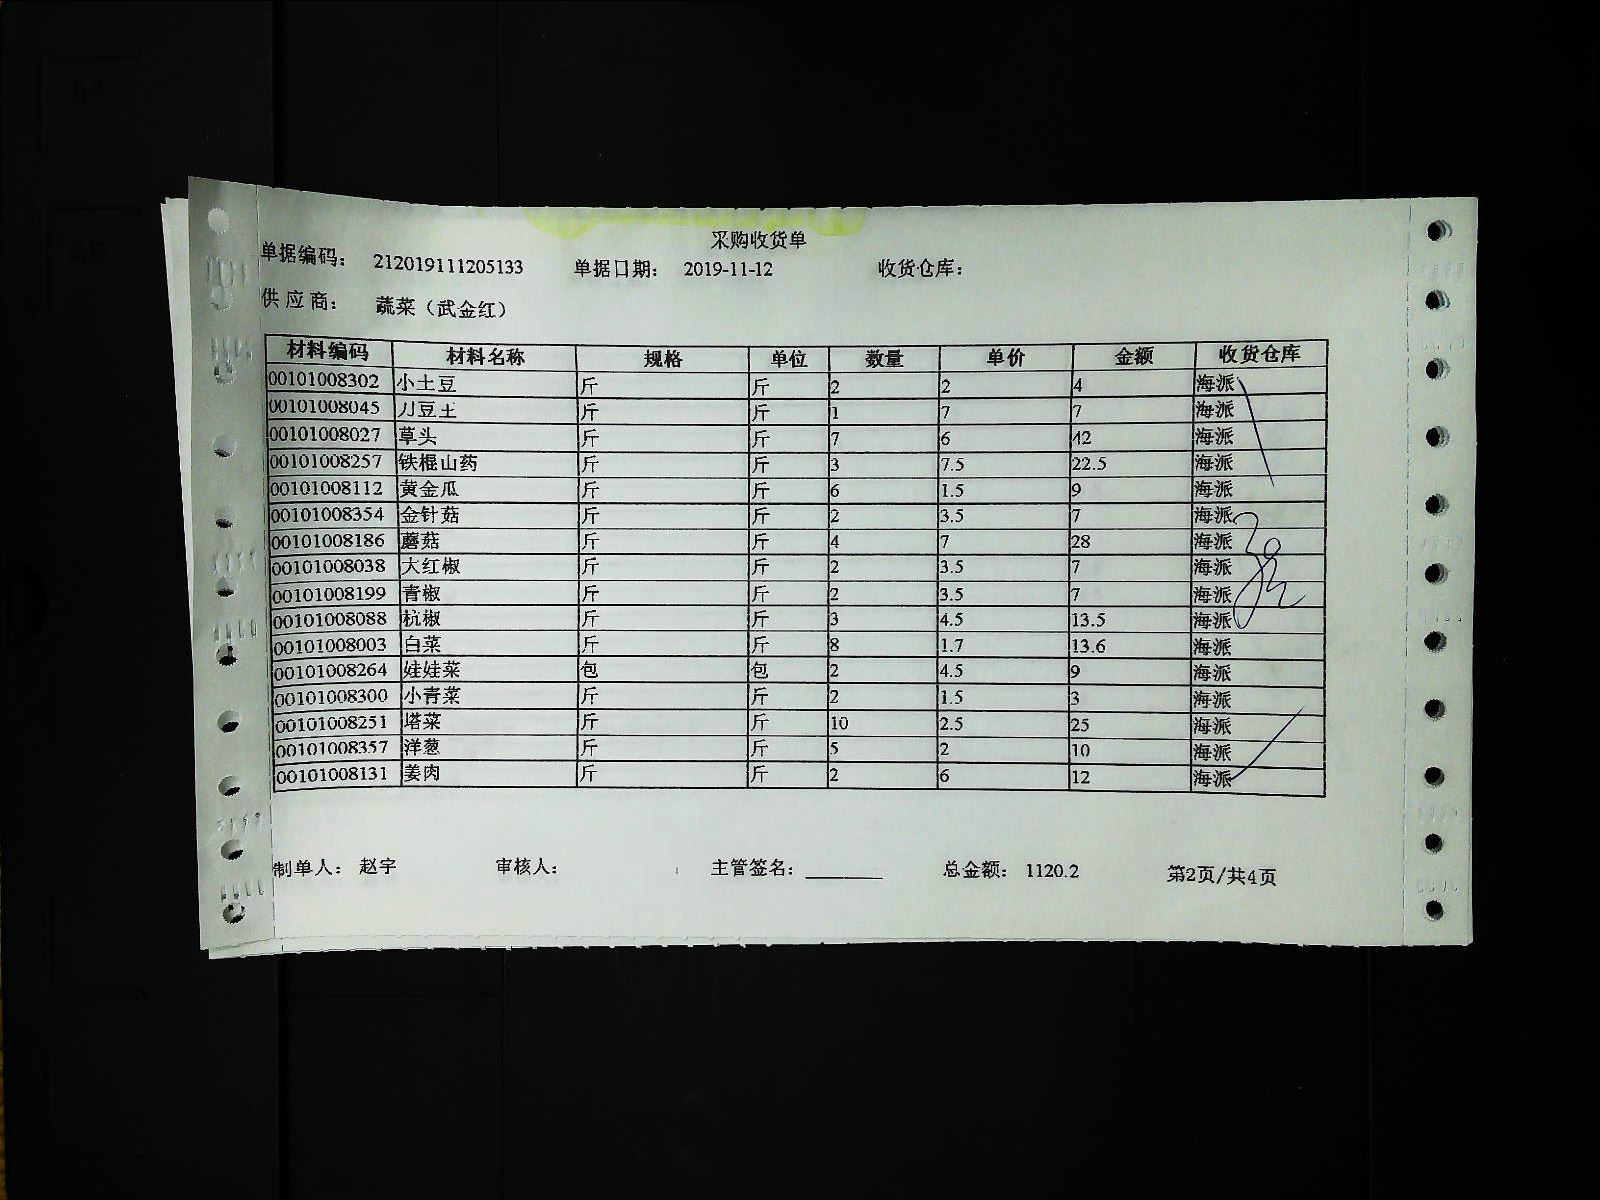 采购收货单
单据编码： 212019111205133 单据日期： 2019-11-12 收货仓库：
供应商： 蔬菜（武金红）
材料编码 材料名称 规格 单位 数量 单价 金额 收货仓库
00101008302 小土豆 斤 斤 2 2 4 海派
00101008045 刀豆王 斤 斤 1 7 7 海派
00101008027 草头 斤 斤 7 6 42 海派
00101008257 铁棍山药 斤 斤 3 7.5 22.5 海派
00101008112 黄金瓜 斤 斤 6 1.5 9 海派
00101008354 金针菇 斤 斤 2 3.5 7 海派
00101008186 蘑菇 斤 斤 4 7 28 海派
00101008038 大红椒 斤 斤 2 3.5 7 海派
00101008199 青椒 斤 斤 2 3.5 7 海派
00101008088 杭椒 斤 斤 3 4.5 13.5 海派
00101008003 白菜 斤 斤 8 1.7 13.6 海派
00101008264 娃娃菜 包 包 2 4.5 9 海派
00101008300 小青菜 斤 斤 2 1.5 3 海派
00101008251 塔菜 斤 斤 10 2.5 25 海派
00101008357 洋葱 斤 斤 5 2 10 海派
00101008131 姜肉 斤 斤 2 6 12 海派
制单人： 赵宇 审核人： 主管签名： 总金额： 1120.2 第2页/共4页